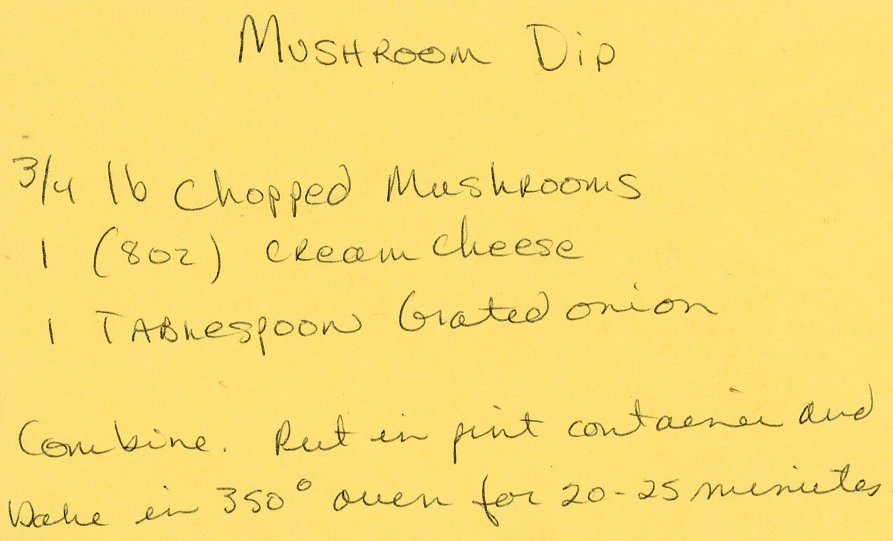 Mushroom Dip
3/4 lb chopped Mushrooms
1 (8oz) cream cheese
1 Tablespoon Grated onion
Combine. Put in pint container and
bake in 350° oven for 20-25 minutes